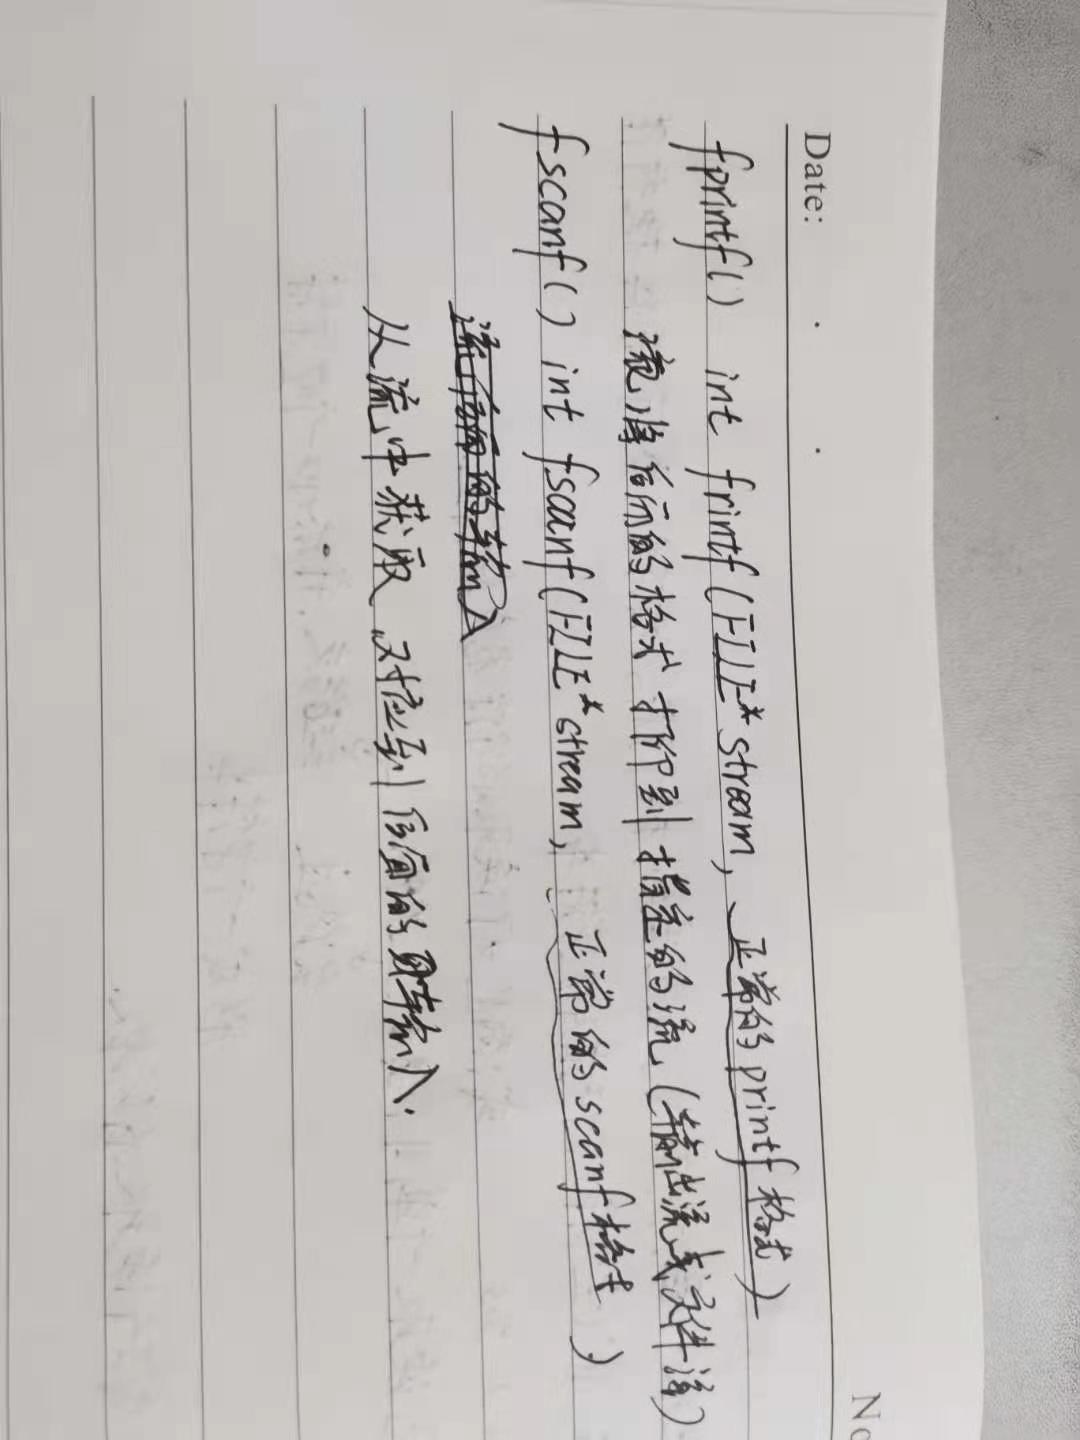 Date: No
fprintf() int frintf(FILE* stream, 正常的printf格式)
将后面的格式打印到指定的流(输出流或文件流)
fscanf() int fscanf(FILE* stream, 正常的scanf格式)
流后面的输入
从流中获取 对应到后面的输入.